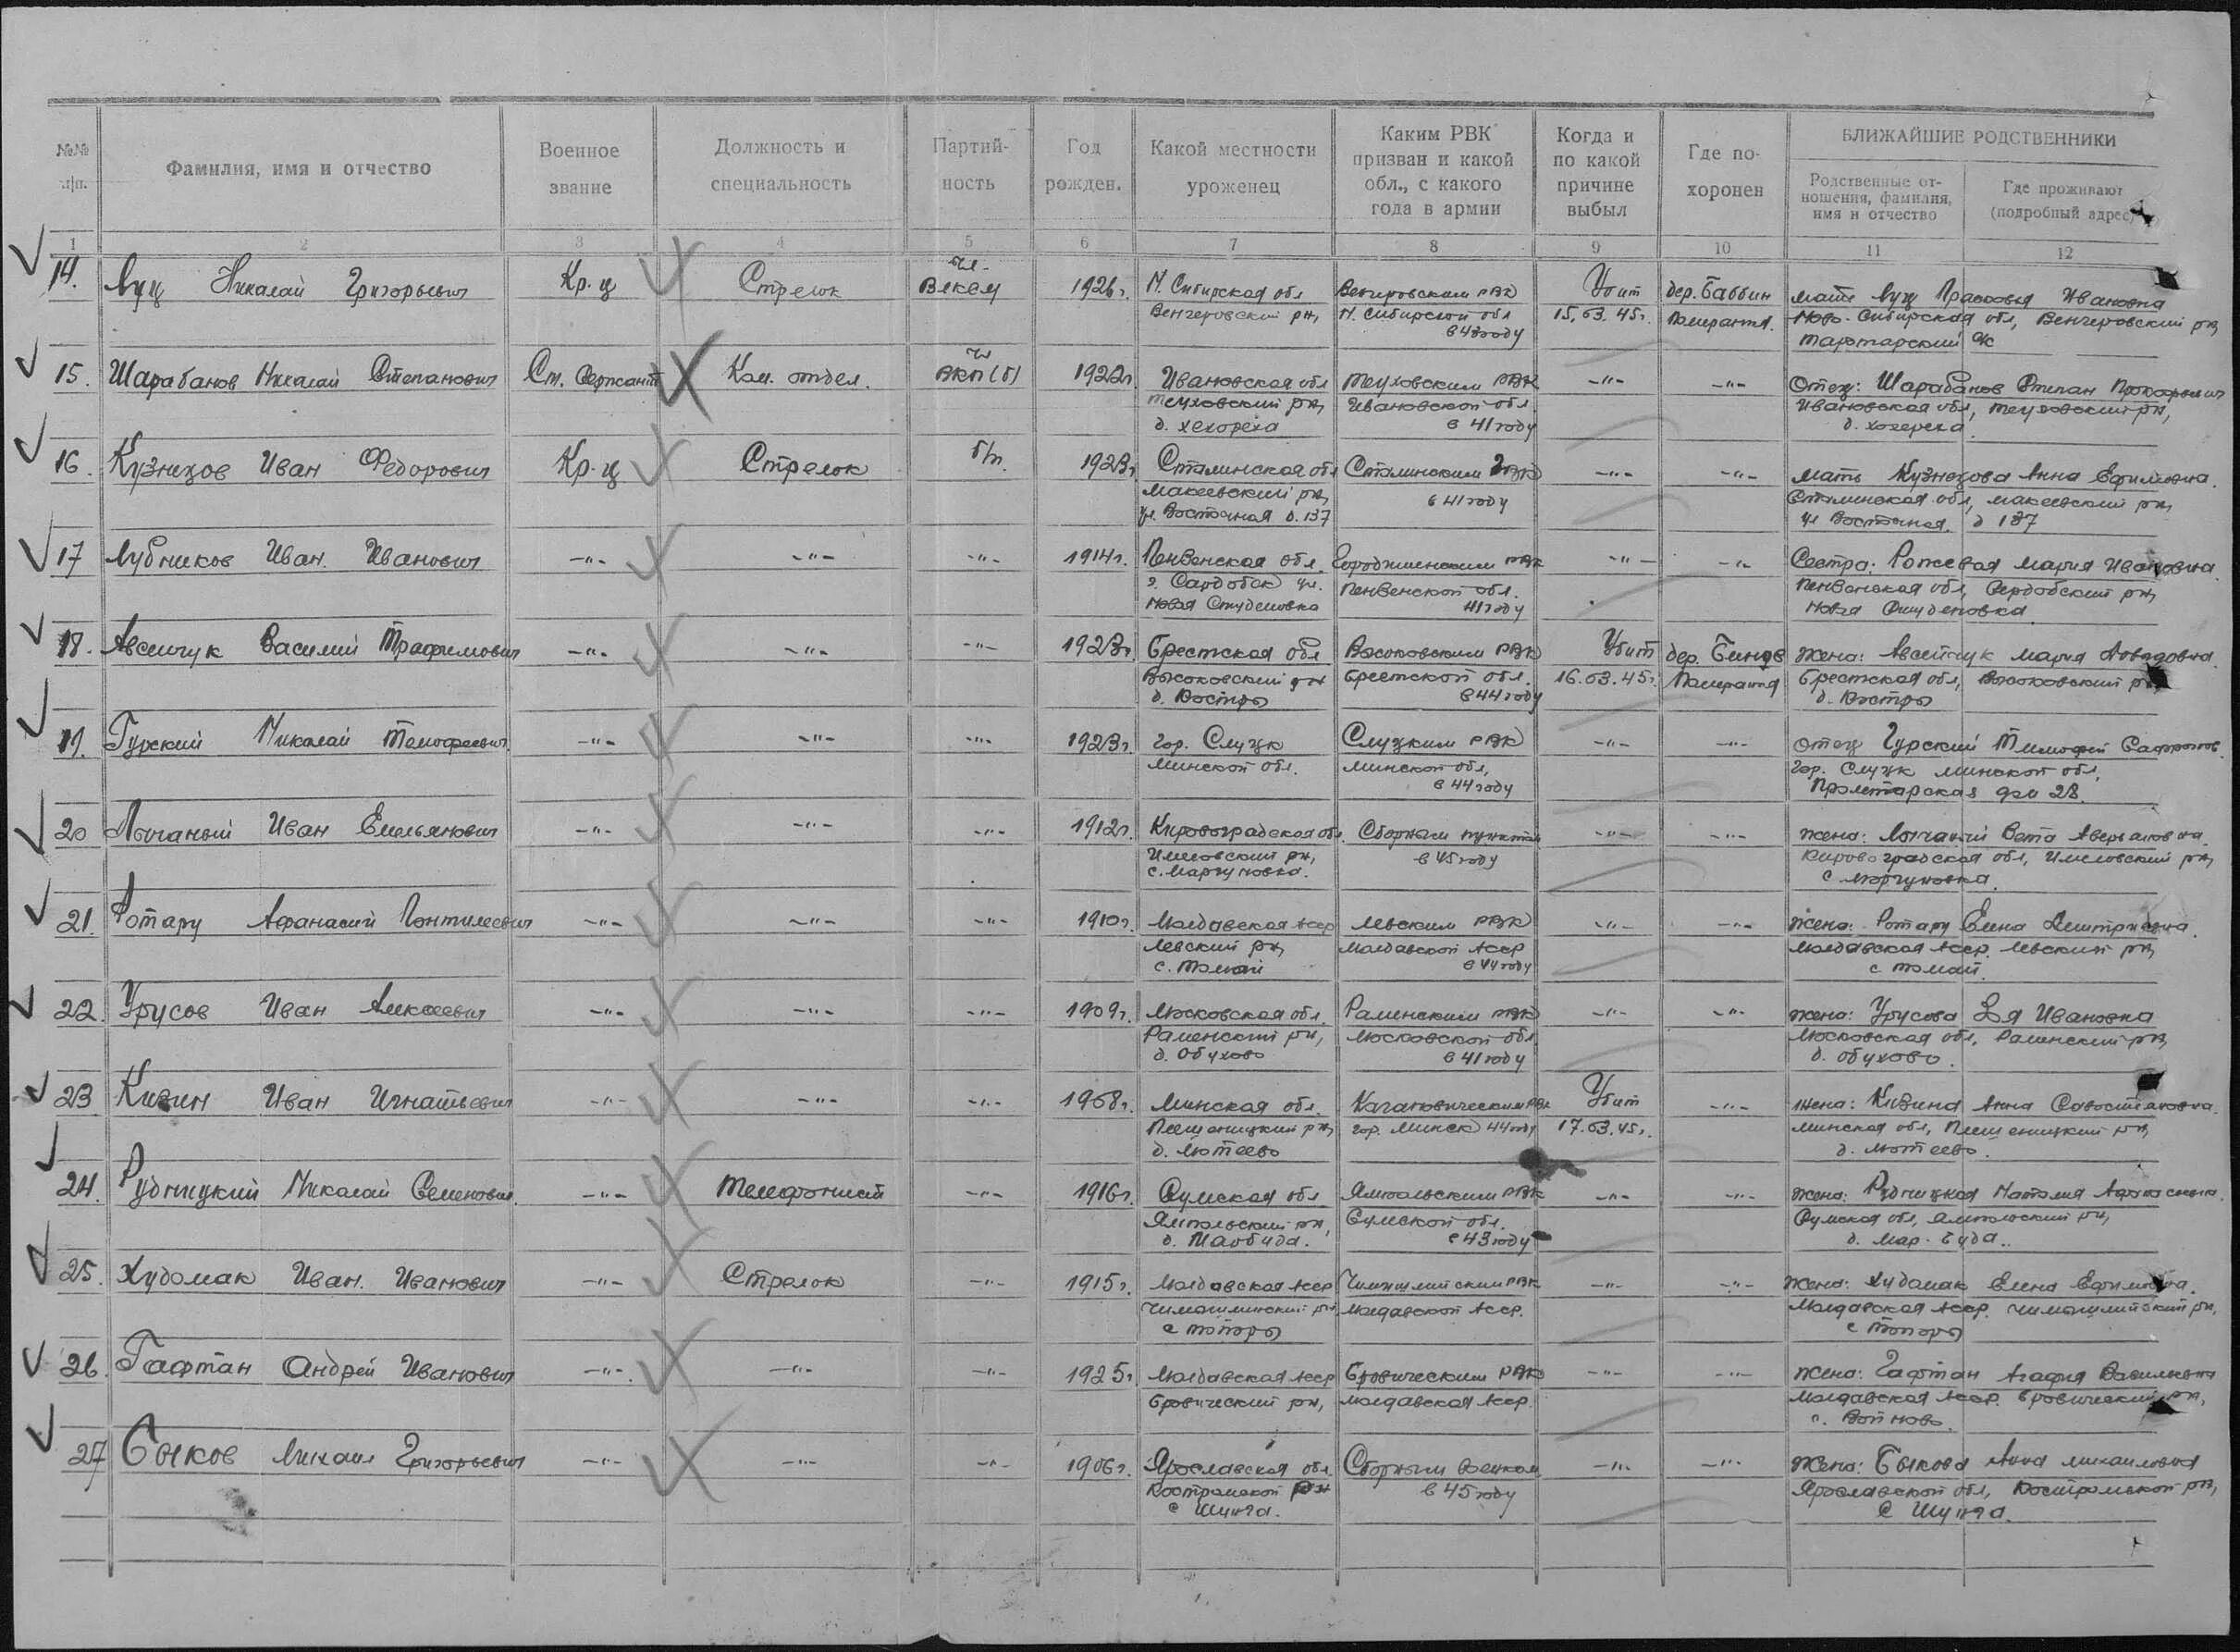 №№ п/п.
Фамилия, имя и отчество
Военное звание
Должность и специальность
Партий-ность
Год рожден.
Какой местности уроженец
Каким РВК призван и какой обл., с какого года в армии
Когда и по какой причине выбыл
Где по-хоронен
БЛИЖАЙШИЕ РОДСТВЕННИКИ
Родственные от-ношения, фамилия, имя и отчество
Где проживают (подробный адрес)
1 2 3 4 5 6 7 8 9 10 11 12
14. Луц Николай Григорьевич Кр-ц Стрелок чл. ВЛКСМ 1926г. Н. Сибирская обл Венгеровским РВК Убит дер. Баббин мать Луц Прасковья Ивановна
Венгеровский рн, Н. Сибирской обл 15.03.45г. Померания. Ново-Сибирская обл, Венгеровский рн
в 43 году Тартарский с/с
15. Шарабанов Николай Степанович Ст. Сержант Ком. отдел. чл ВКП(б) 1922г. Ивановская обл Теуховским РВК -"- -"- Отец: Шарабанов Степан Прокофьевич
Теуховский рн, Ивановской обл. Ивановская обл, Теуховский рн,
в 41 году
16. Кузнецов Иван Федорович Кр-ц Стрелок б/п. 1923г. Сталинская обл Сталинским РВК -"- -"- мать Кузнецова Анна Ефимовна.
Макеевский рн, в 41 году Сталинская обл, Макеевский рн,
ул. Восточная д. 137 ул Восточная. д 137
17 Лубников Иван Иванович -"- -"- -"- 1914г. Пензенская обл. РВК -"- -"- Сестра: Мария Ивановна
г. Сардобск ул. Пензенской обл. Пензенская обл, Сердобский рн,
Новая Студеновка 41 году Новая Студеновка.
18. Авсейчук Василий Трафимович -"- -"- -"- 1923г. Брестская обл Высоковским РВК Убит дер. жена: Авсейчук Мария
Высоковский рн Брестской обл. 16.03.45г. Померания Брестская обл, Высоковский рн
д. Востры в 44 году д. Востры
19. Гурский Николай Тимофеевич. -"- -"- -"- 1923г. гор. Слуцк Слуцким РВК -"- -"- отец Гурский Тимофей Сафронов.
Минской обл. Минской обл, гор. Слуцк Минской обл,
в 44 году Пролетарская дом 28.
20 Лычаный Иван Емельянович -"- -"- -"- 1912г. Кировоградская обл. Сборным пунктом -"- -"- жена: Лычаный Вета Аверьяновна
рн, в 45 году Кировоградская обл, рн,
с. Маргуновка. с Маргуновка.
21. Ротару Афанасий Пантилеевич -"- -"- -"- 1910г. Молдавская АССР Левским РВК -"- -"- жена: Ротару Елена Дмитриевна.
Левский рн, Молдавской АССР Молдавская АССР. Левский рн,
с. Томай в 44 году с Томай.
22. Урусов Иван Алексеевич -"- -"- -"- 1909г. Московская обл. Раменским РВК -"- -"- жена: Урусова Ивановна
Раменский рн, Московской обл Московская обл, Раменский рн,
д. Обухово в 41 году д. Обухово.
23 Кизин Иван Игнатьевич -"- -"- -"- 1908г. Минская обл. Кагановическим РВК Убит -"- жена: Кизина Анна Савостяновна.
Плещеницкий рн, гор. Минск 44 году 17.03.45г. Минская обл, Плещеницкий рн,
д. Лютеево д. Лютеево.
24. Рудницкий Николай Семенович. -"- Телефонист -"- 1916г. Сумская обл Ямпольским РВК -"- -"- жена: Рудницкая Наталия Афанасьевна.
Ямпольский рн, Сумской обл. Сумская обл, Ямпольский рн,
в 43 году д. Мар. Буда..
25. Худомак Иван. Иванович -"- Стрелок -"- 1915г. Молдавская АССР РВК -"- -"- жена: Худомак Елена Ефимовна.
рн Молдавской АССР. Молдавская АССР. рн,
с Топоры с Топоры
26. Гафтан Андрей Иванович -"- -"- -"- 1925г. Молдавская АССР Бровическим РВК -"- -"- жена: Гафтан Агафия Васильевна
Бровический рн, Молдавская АССР. Молдавская АССР. Бровический рн,
с. Войново.
27 Быков Михаил Григорьевич -"- -"- -"- 1906г. Ярославская обл. Сборным -"- -"- жена: Быкова Анна Михайловна
Костромской рн в 45 году Ярославской обл, Костромской рн,
с Шунга. с Шунга.